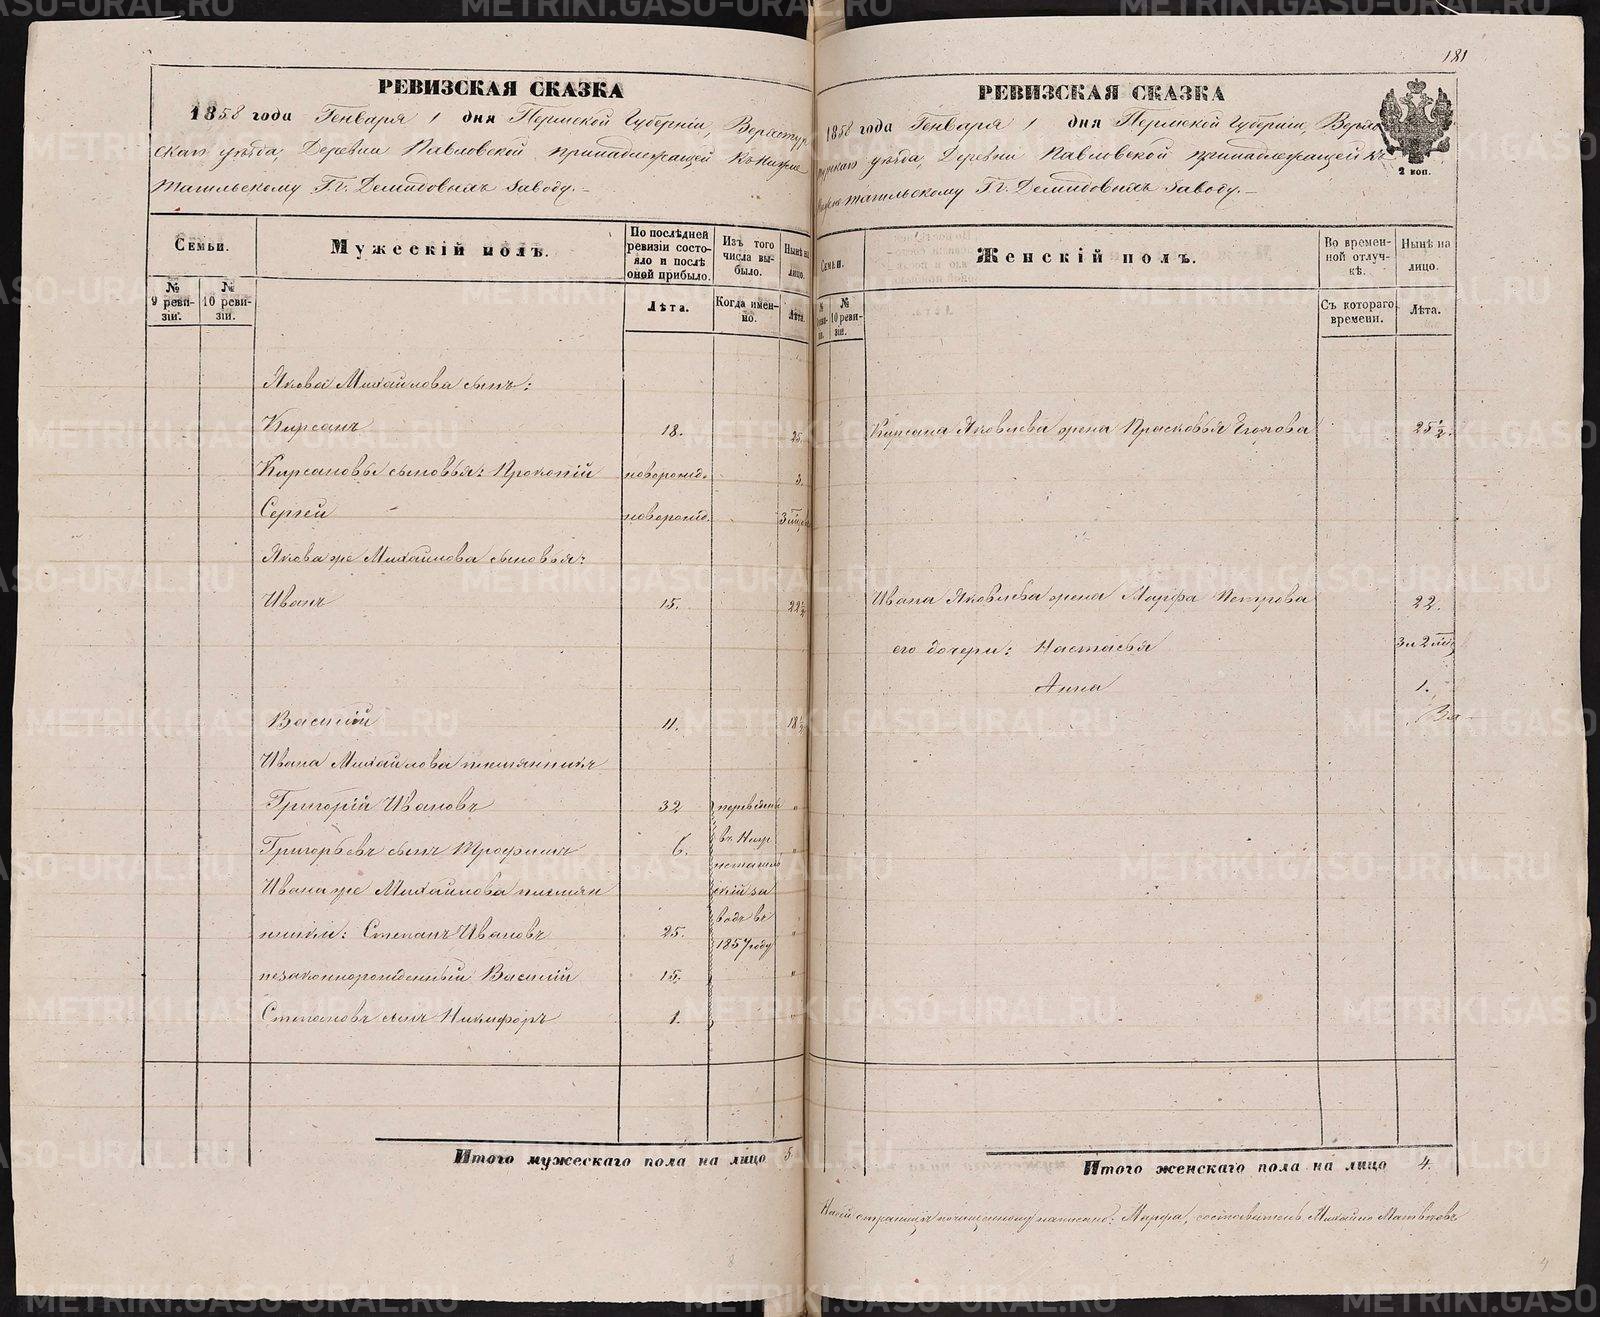 181
РЕВИЗСКАЯ СКАЗКА
1858 года Генваря 1 дня Пермской Губерніи, Верхотур
скаго уѣзда, Деревни Павловской принадлежащей къ Нижне
тагильскому Гг. Демидовыхъ Заводу.
Семьи.
Мужескій полъ.
По послѣдней ревизіи состояло и послѣ оной прибыло.
Изъ того числа выбыло.
Нынѣ на лицо.
№ 9 ревизіи.
№ 10 ревизіи.
Лѣта.
Когда именно.
Лѣта.
Якова Михайлова сынъ:
Кирсанъ 18. 25.
Кирсановы сыновья: Прокопій новорожд. 3.
Сергей новорожд. 3
Якова же Михайлова сыновья:
Иванъ 15. 22½
Василій 11. 18½
Ивана Михайлова племянникъ
Григорій Ивановъ 32 "
Григорьевъ сынъ Трофимъ 6. "
Ивана же Михайлова племян
ники: Степанъ Ивановъ 25. "
незаконнорожденный Василій 15. "
Степановъ сынъ Никифоръ 1.
въ
скій за
водъ въ
1857 году
Итого мужескаго пола на лицо 5
РЕВИЗСКАЯ СКАЗКА
1858 года Генваря 1 дня Пермской Губерніи, Верхо
турскаго уѣзда, Деревни Павловской принадлежащей къ
Нижнетагильскому Гг. Демидовыхъ Заводу.
2 коп.
Семьи.
Женскій полъ.
Во временной отлучкѣ.
Нынѣ на лицо.
№ 10 ревизіи.
Съ котораго времени.
Лѣта.
Кирсана Яковлева жена Прасковья Егорова 25½.
Ивана Яковлева жена Марфа Петрова 22.
его дочери: Настасья 3 и 2
Анна 1.
Итого женскаго пола на лицо 4.
На сей страницѣ по чищенному написано: Марфа, составитель Михайло Матвѣевъ
METRIKI.GASO-URAL.RU